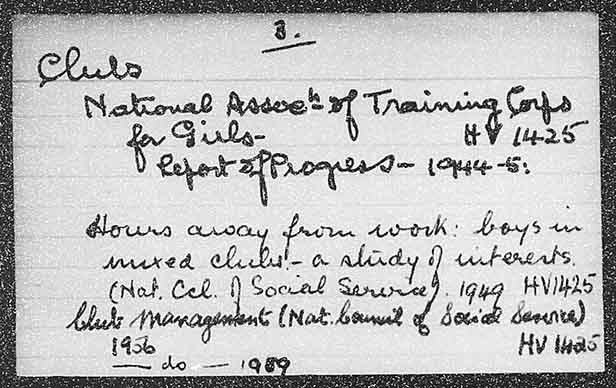 3.
Clubs
National Assocn of Training Corps
for Girls- HV 1425
Report of Progress- 1944-5.
Hours away from work: boys in
mixed clubs:- a study of interests.
(Nat. Ccl. of Social Service). 1949 HV1425
Club Management (Nat. Council of Social Service)
1956 HV 1425
— do — 1959